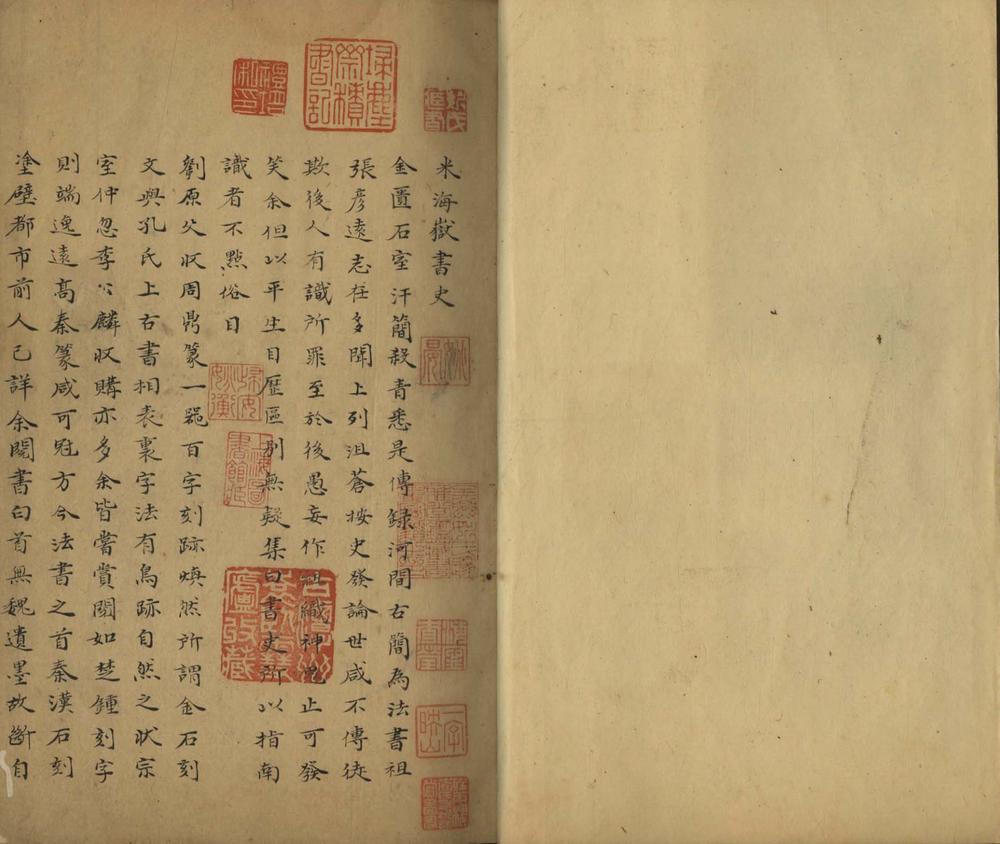 米海嶽書史
金匱石室汗簡殺青悉是傳録河間古簡為法書祖
張彥遠志在多聞上列沮蒼按史發論世咸不傳徒
欺後人有識所罪至於後愚妄作組織神鬼止可發
笑余但以平生目歷區別無疑集曰書史所以指南
識者不點俗目
劉原父收周鼎篆一器百字刻跡煥然所謂金石刻
文與孔氏上古書相表裏字法有鳥跡自然之狀宗
室仲忽李公麟收購亦多余皆嘗賞閱如楚鍾刻字
則端逸遠高秦篆咸可冠方今法書之首秦漢石刻
塗壁都市前人已詳余閱書白首無魏遺墨故斷自
掃塵齋積書記
禮培私印
上海圖書館藏
古潭州袁臥雪廬收藏